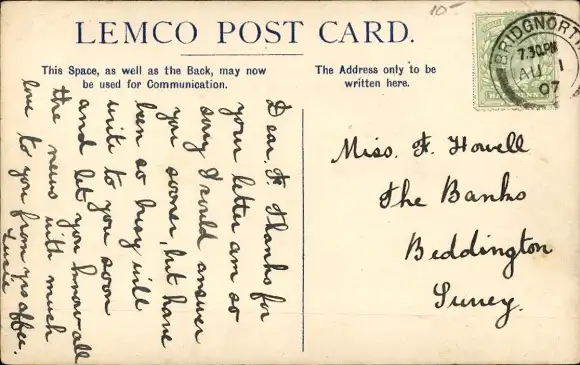 10-
LEMCO POST CARD.
This Space, as well as the Back, may now
be used for Communication.
The Address only to be
written here.
BRIDGNORTH
7.30PM
AU 1
07
Dear F. Thanks for
your letter am so
sorry I could answer
you sooner, but have
been so busy will
write to you soon
and let you know all
the news with much
love to you from yrs affec.
Lucie
Miss. F. Howell
The Banks
Beddington
Surrey.